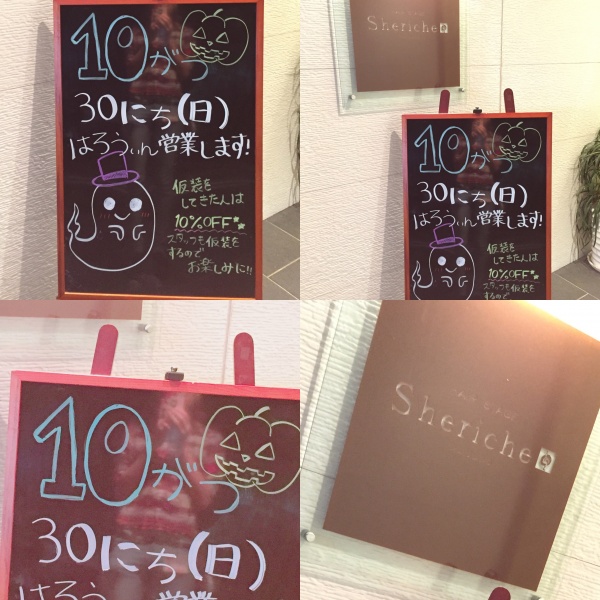 10がつ
30にち(日)
はろうぃん営業します!
仮装を
してきた人は
10%OFF
スタッフも仮装を
するので
お楽しみに!!
Sheriche
10がつ
30にち(日)
はろうぃん営業します!
仮装を
してきた人は
10%OFF
スタッフも仮装を
するので
10がつ
30にち(日)
はろう
営業
Sheriche